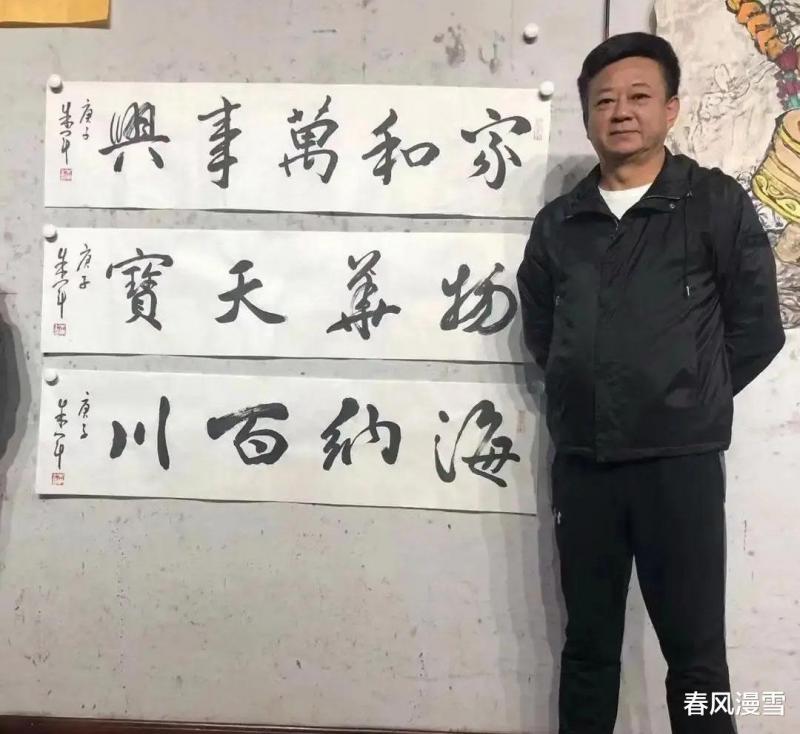 家和萬事興
庚子
朱軍
物華天寶
庚子
朱軍
海納百川
庚子
朱軍
春风漫雪